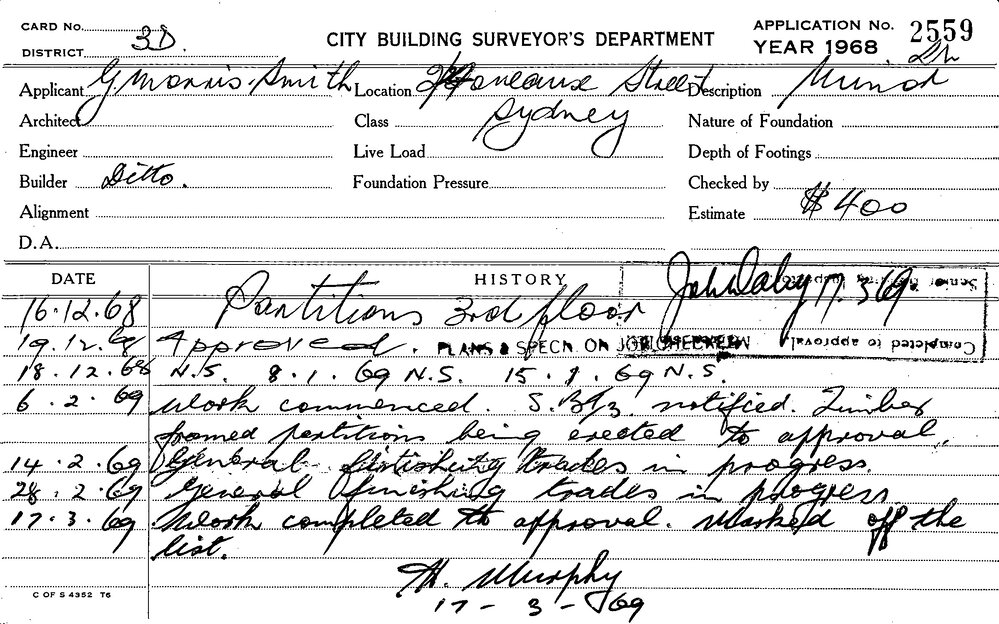 CARD No.
DISTRICT 3D.
CITY BUILDING SURVEYOR'S DEPARTMENT
APPLICATION No. 2559
YEAR 1968
Applicant G. Morris Smith Location Street Description Minor
Architect Class Sydney Nature of Foundation
Engineer Live Load Depth of Footings
Builder Ditto. Foundation Pressure Checked by
Alignment Estimate $400
D.A.
DATE HISTORY John Daley 17.3.69.
16.12.68 Partitions 3rd floor
19.12.68 Approved. PLANS & SPECN. ON JOB CHECKED Completed to approval
18.12.68 N.S. 8.1.69 N.S. 15.1.69 N.S.
6.2.69 Work commenced. notified. Timber
framed partitions being erected to approval.
14.2.69 General finishing trades in progress.
28.2.69 General finishing trades in progress.
17.3.69 Work completed to approval. Marked off the
list.
H. Murphy
17-3-69
C OF S 4352 T6